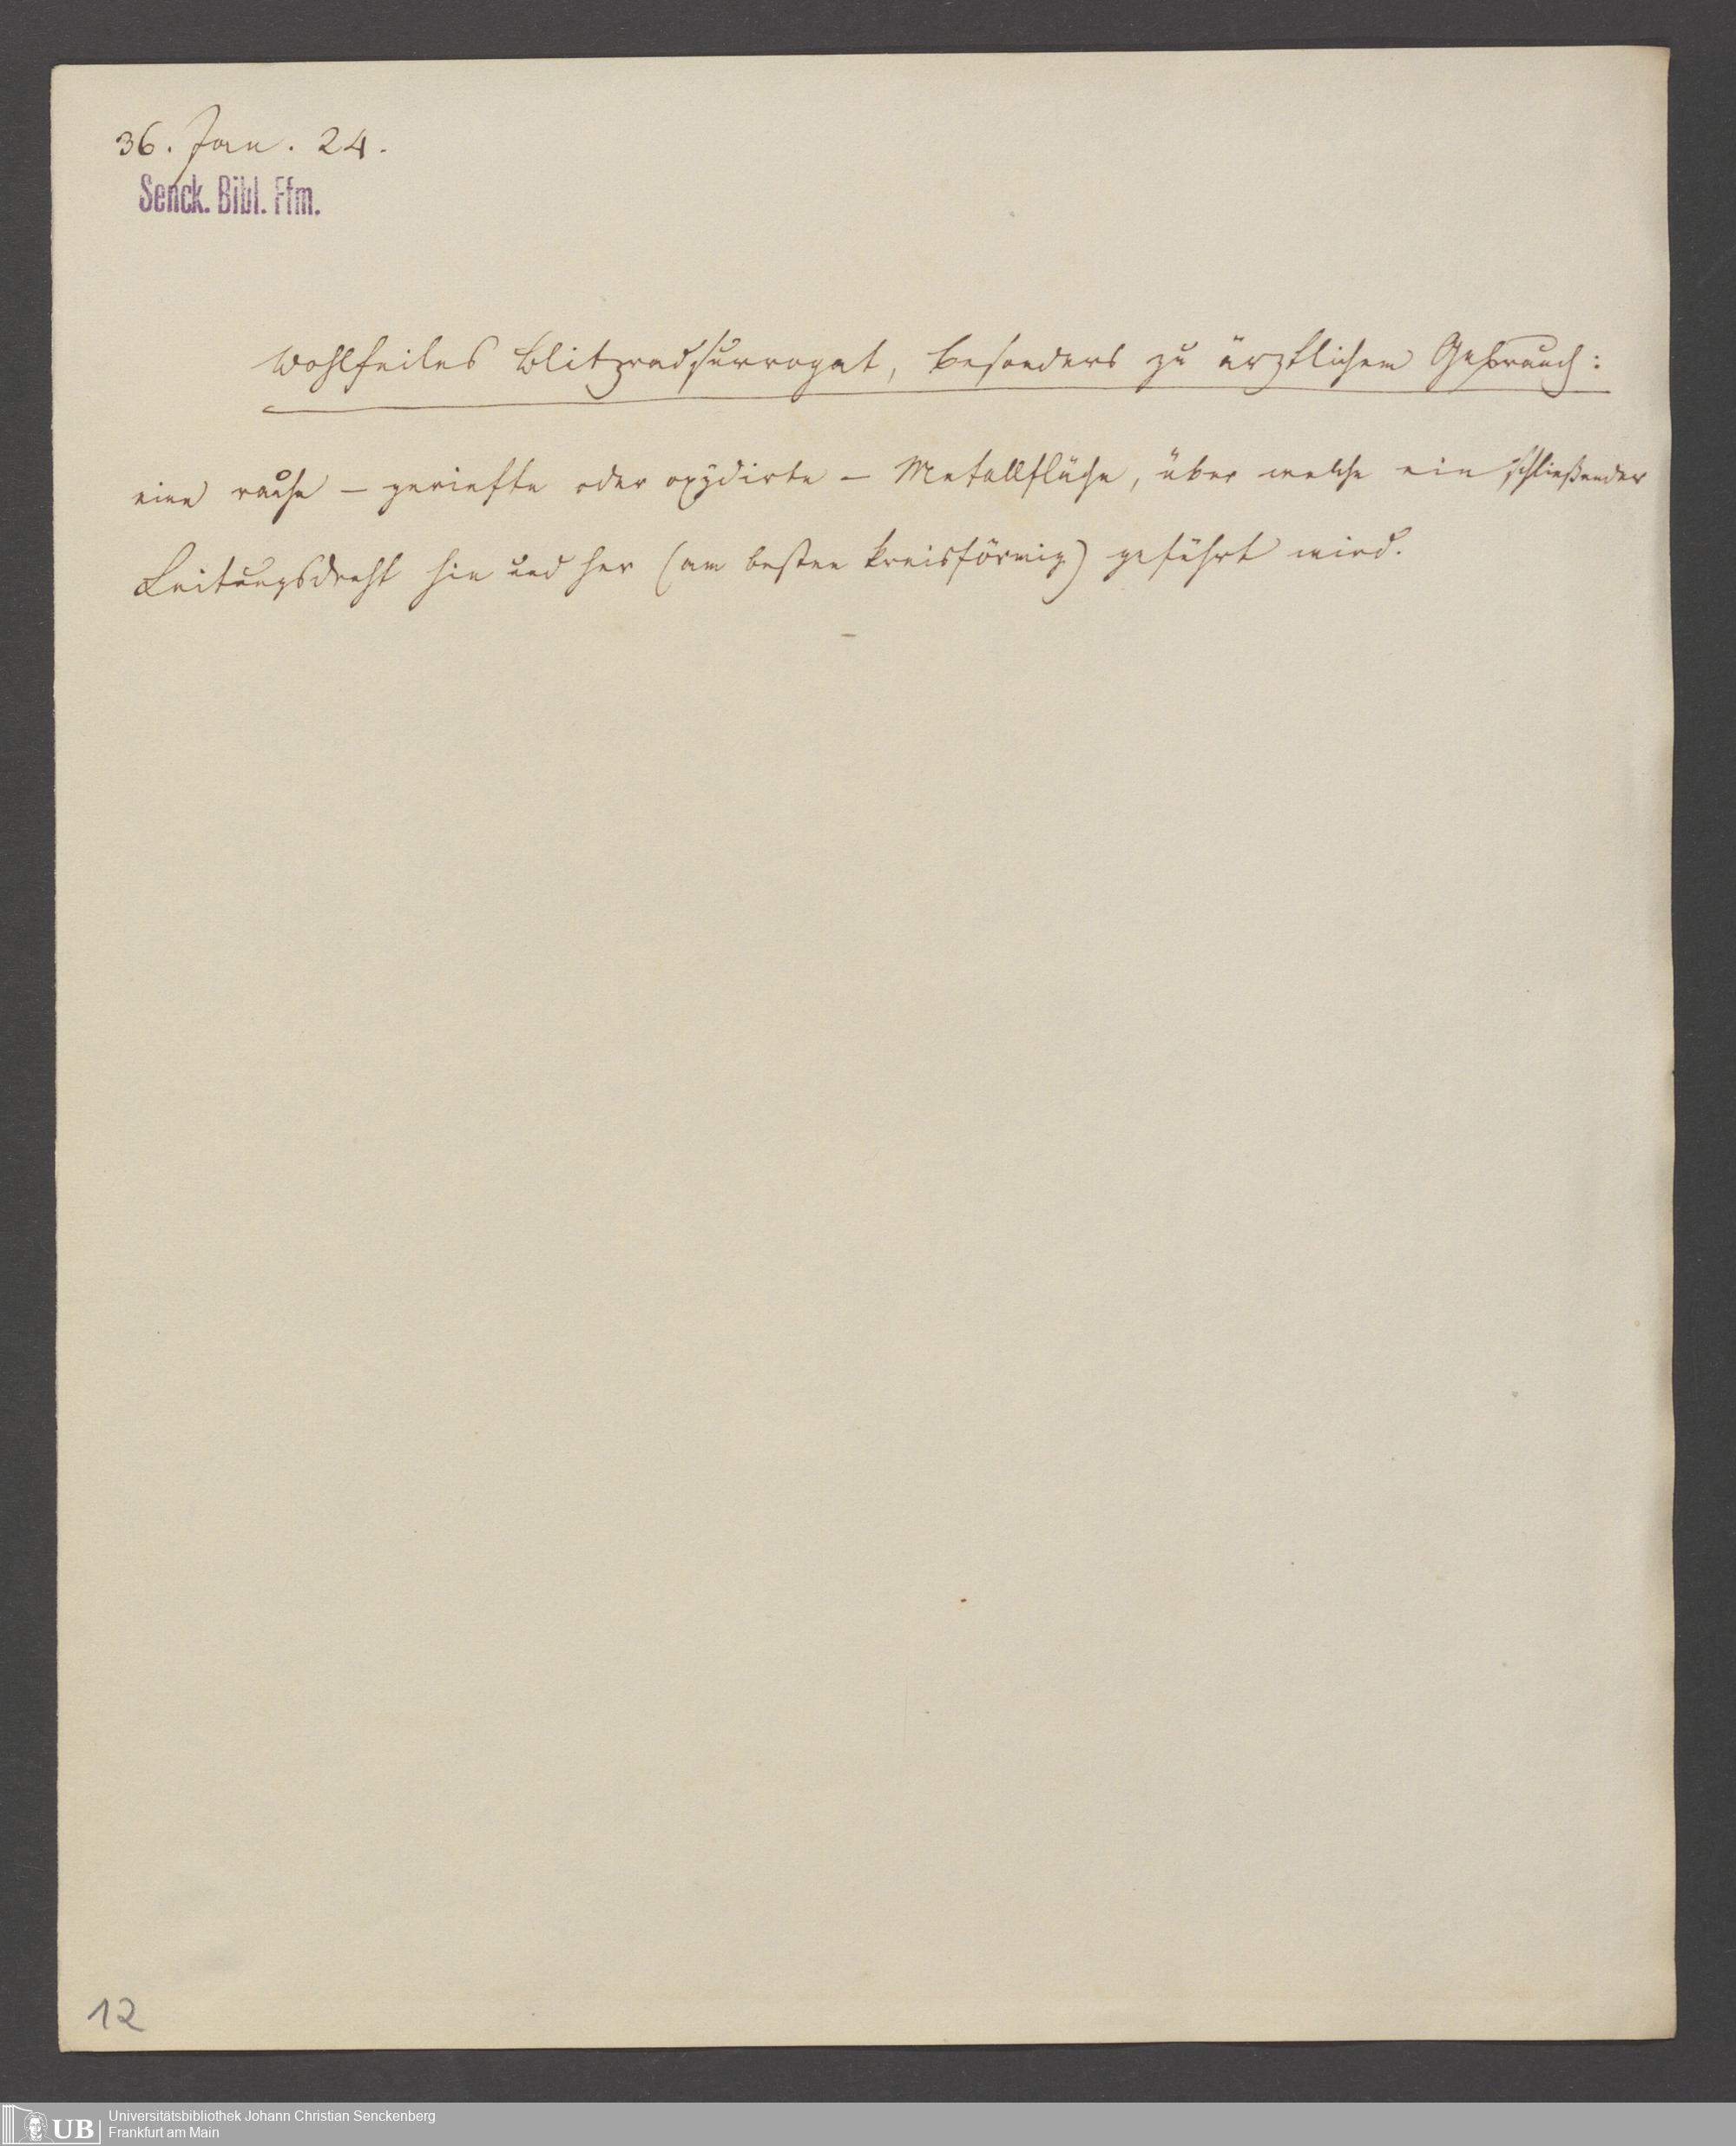 36. Jan. 24.
Senck. Bibl. Ffm.
Wohlfeiles Blitzradsurrogat, besonders zu ärztlichem Gebrauch:
eine rauhe – geriefte oder oxydirte – Metallfläche, über welche ein schließender
Leitungsdraht hin und her (am besten kreisförmig) geführt wird.
12
UB
Universitätsbibliothek Johann Christian Senckenberg
Frankfurt am Main